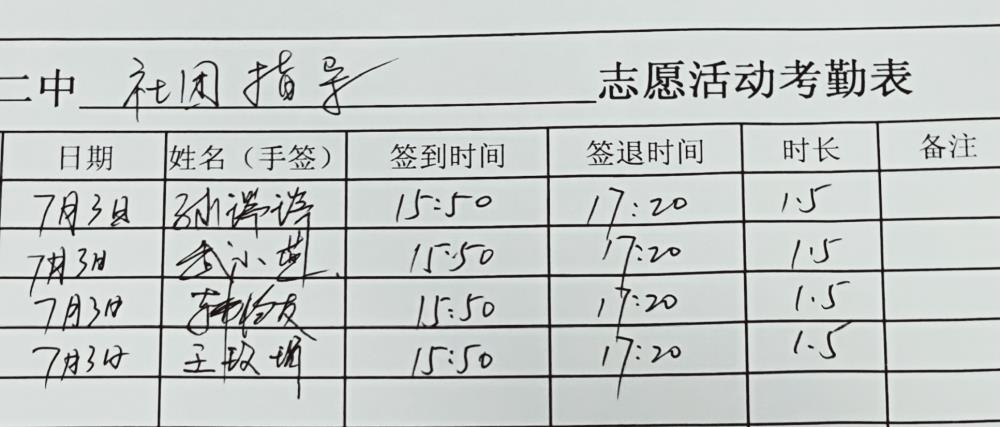 二中 社团指导 志愿活动考勤表
日期 姓名（手签） 签到时间 签退时间 时长 备注
7月3日 孙 15:50 17:20 1.5
7月3日 小 15:50 17:20 1.5
7月3日 15:50 17:20 1.5
7月3日 王玫 15:50 17:20 1.5